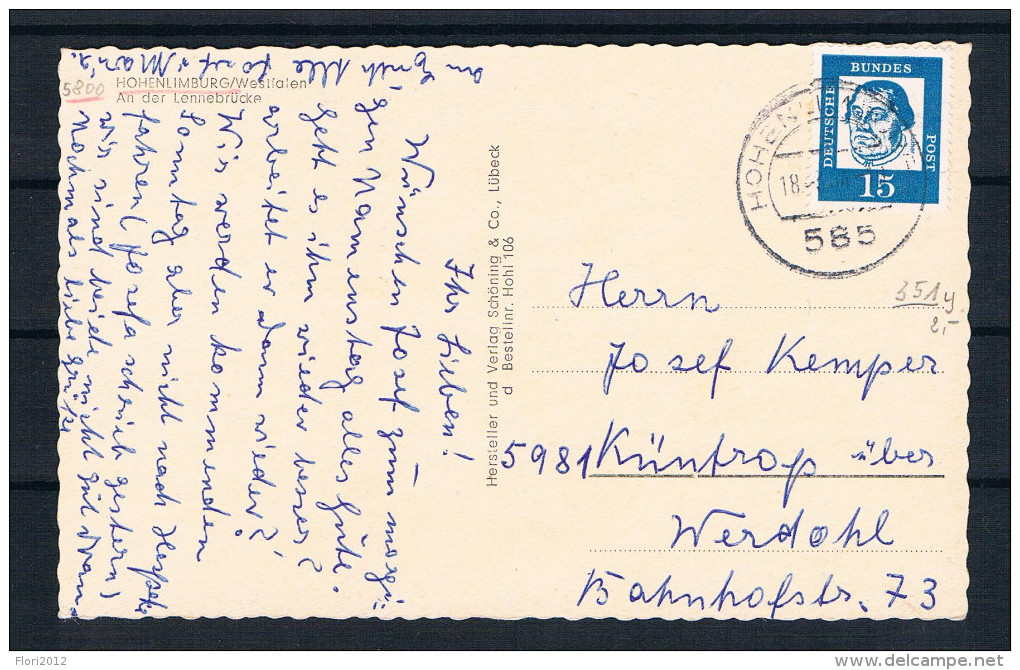 HOHENLIMBURG/Westfalen
An der Lennebrücke
5800
Ihr Lieben!
Wünschen Josef zum morgi-
gen Namenstag alles Gute.
Geht es ihm wieder besser?
arbeitet er dann wieder?
Wir werden kommenden
Sonntag aber nicht nach
fahren (Josefa schrieb gestern)
wir sind beide nicht gut dran
Nochmals liebe Grüße
an Euch Alle Josef u Maria.
Hersteller und Verlag Schöning & Co., Lübeck
d Bestellnr. Hohl 106
DEUTSCHE BUNDES POST
15
585
351y
2,-
Herrn
Josef Kemper
5981 Küntrop über
Werdohl
Bahnhofstr. 73
Flori2012
delcampe.net